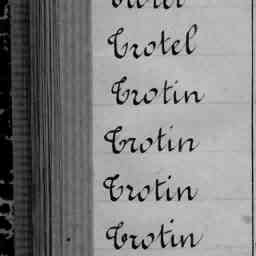 Trotel
Trotin
Trotin
Trotin
Trotin